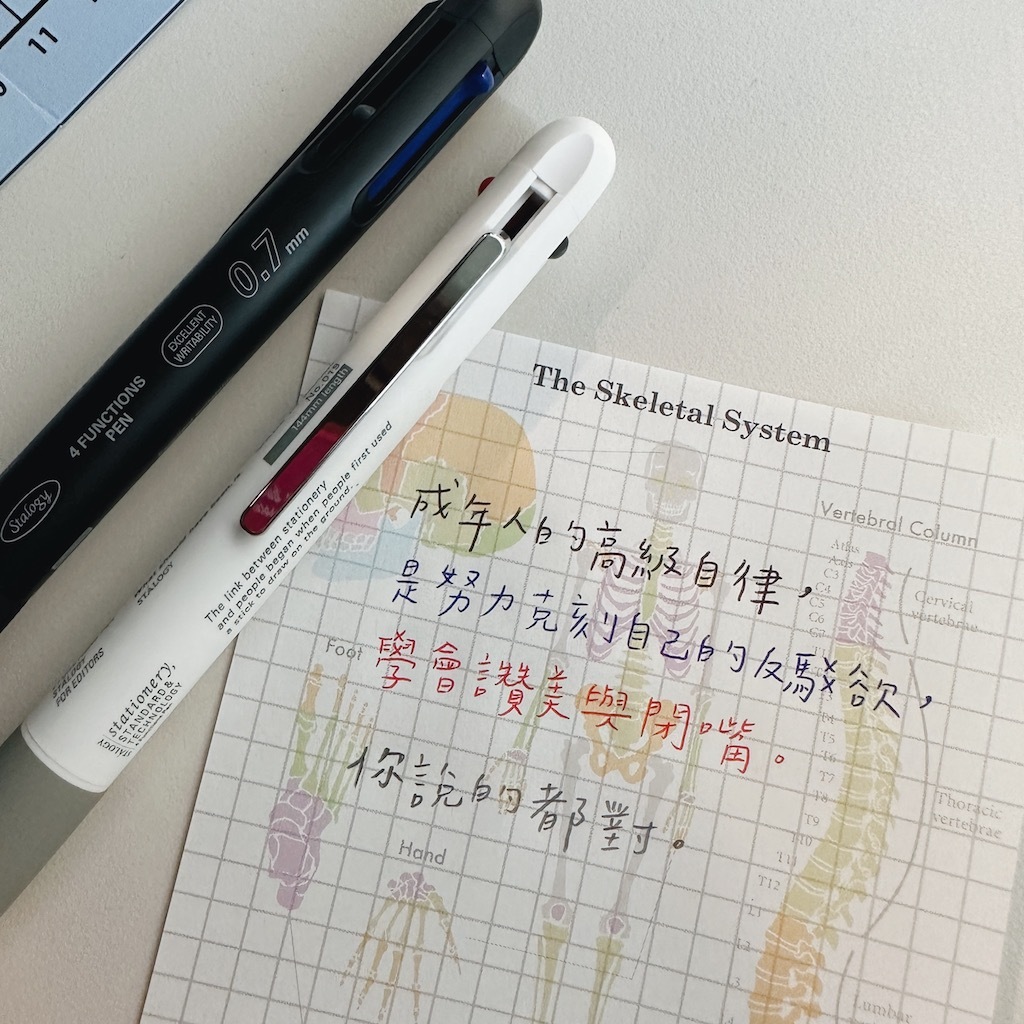 11
0.7 mm
EXCELLENT
WRITABILITY
4 FUNCTIONS
PEN
Stalogy
No.019
144mm length
The link between stationery
and people began when people first used
a stick to draw on the ground.
STALOGY
STALOGY
FOR EDITORS
stationery,
STANDARD &
TECHNOLOGY
The Skeletal System
成年人的高級自律，
是努力克刻自己的反駁欲，
學會讚美與閉嘴。
你說的都對。
Foot
Hand
Vertebral Column
Atlas
Axis
C3
C4
C5
C6
C7
T1
Cervical
vertebrae
T4
T5
T6
T7
T8
T9
T10
T11
T12
Thoracic
vertebrae
L1
L2
L3
Lumbar